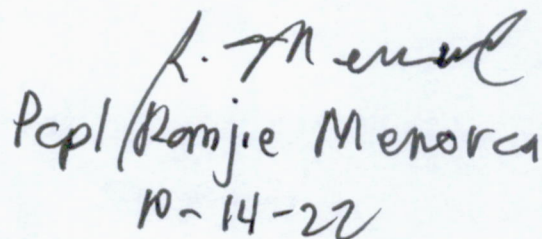 R. Menorca
Pcpl Ramjie Menorca
10-14-22